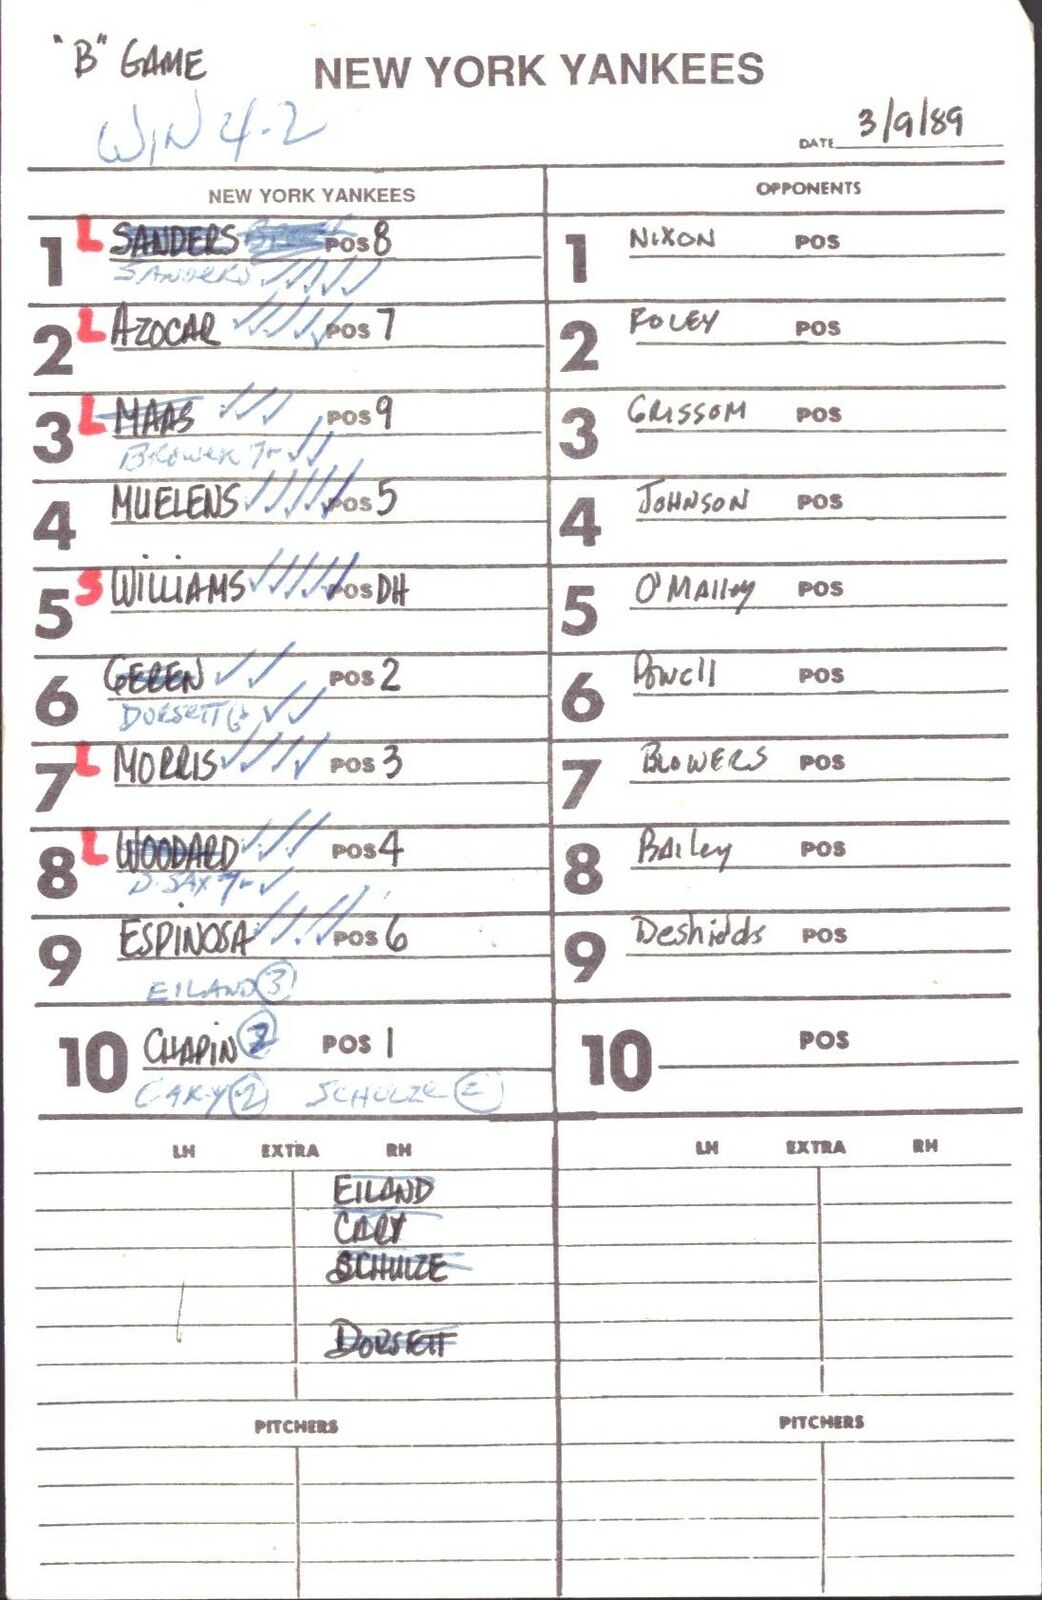 "B" GAME
NEW YORK YANKEES
WIN 4-2
DATE 3/9/89
NEW YORK YANKEES
OPPONENTS
1 L SANDERS POS 8
SANDERS
2 L AZOCAR POS 7
3 L MAAS POS 9
BROWER 7-
4 MUELENS POS 5
5 S WILLIAMS POS DH
6 GEREN POS 2
DORSETT
7 L MORRIS POS 3
8 L WOODARD POS 4
D. SAX 7-
9 ESPINOSA POS 6
EILAND 3
10 CHAPIN 2 POS 1
CARY 2 SCHULZE 2
1 NIXON POS
2 FOLEY POS
3 GRISSOM POS
4 JOHNSON POS
5 O'MAlley POS
6 POWell POS
7 BLOWERS POS
8 BAiley POS
9 Deshields POS
10 POS
LH EXTRA RH
EILAND
CARY
SCHULZE
DORSETT
LH EXTRA RH
PITCHERS
PITCHERS